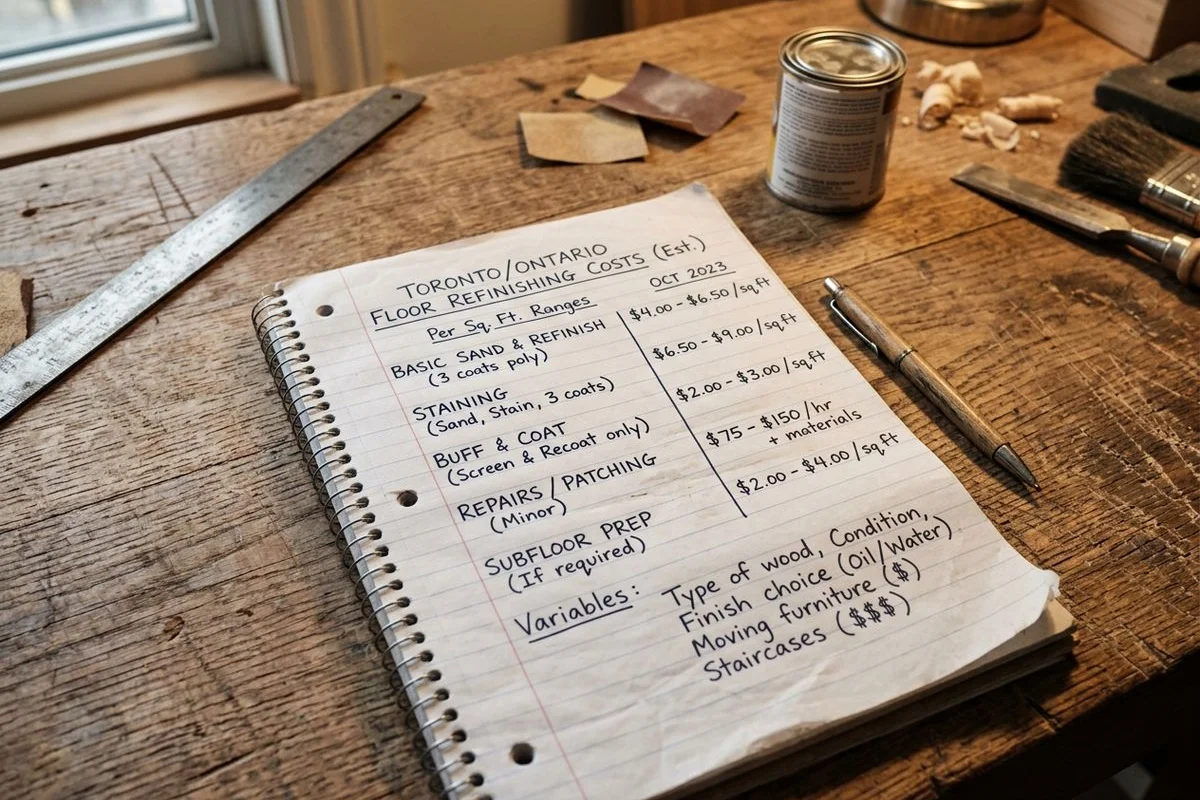 TORONTO/ONTARIO
FLOOR REFINISHING COSTS (Est.)
Per Sq. Ft. Ranges
OCT 2023
BASIC SAND & REFINISH
(3 coats poly)
$4.00 - $6.50/sqft
STAINING
(Sand, Stain, 3 coats)
$6.50 - $9.00/sqft
BUFF & COAT
(Screen & Recoat only)
$2.00 - $3.00/sqft
REPAIRS/PATCHING
(Minor)
$75 - $150/hr
+ materials
SUBFLOOR PREP
(If required)
$2.00 - $4.00/sqft
Variables:
Type of wood, Condition,
Finish choice (Oil/Water)
Moving furniture ($)
Staircases ($$$)